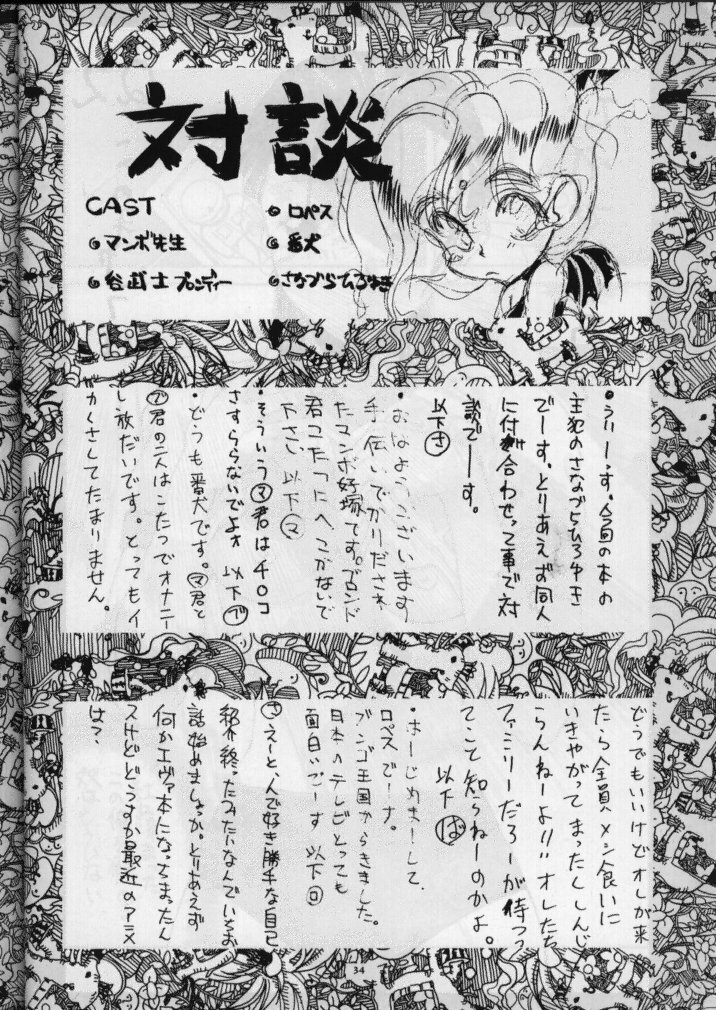 対談
CAST
マンボ先生
谷武士ブンディー
ロペス
番犬
さなづらひろゆき
・ういーっす、今回の本の
主犯のさなづらひろゆき
でーす、とりあえず同人
に付き合わせって事で対
談でーす。
以下さ
・おはようございます
手伝いでかりだされ
たマンボ好塚です。ブロンド
君こたつにへこかないで
下さい 以下マ
・そういうマ君はチ〇コ
さすらないでよォ 以下ブ
・どうも番犬です。マ君と
ブ君の二人はこたつでオナニー
し放だいです。とってもイ
カくさくてたまりません。
どうでもいいけどオレが来
たら全員メシ食いに
いきやがってまったくしんじ
らんねーよ!!!オレたち
ファミリーだろーが待つっ
てこと知らねーのかよ。
以下ば
・はーじめまーして、
ロペスでーす。
ブンゴ王国からきました。
日本のテレビとっても
面白いでーす 以下ロ
さえーと、んで好き勝手な自己
紹介終ったみたいなんでいちお
話始めましょっか。とりあえず
何かエヴァ本になってまったん
スけどどうすか最近のアニメ
は?
34